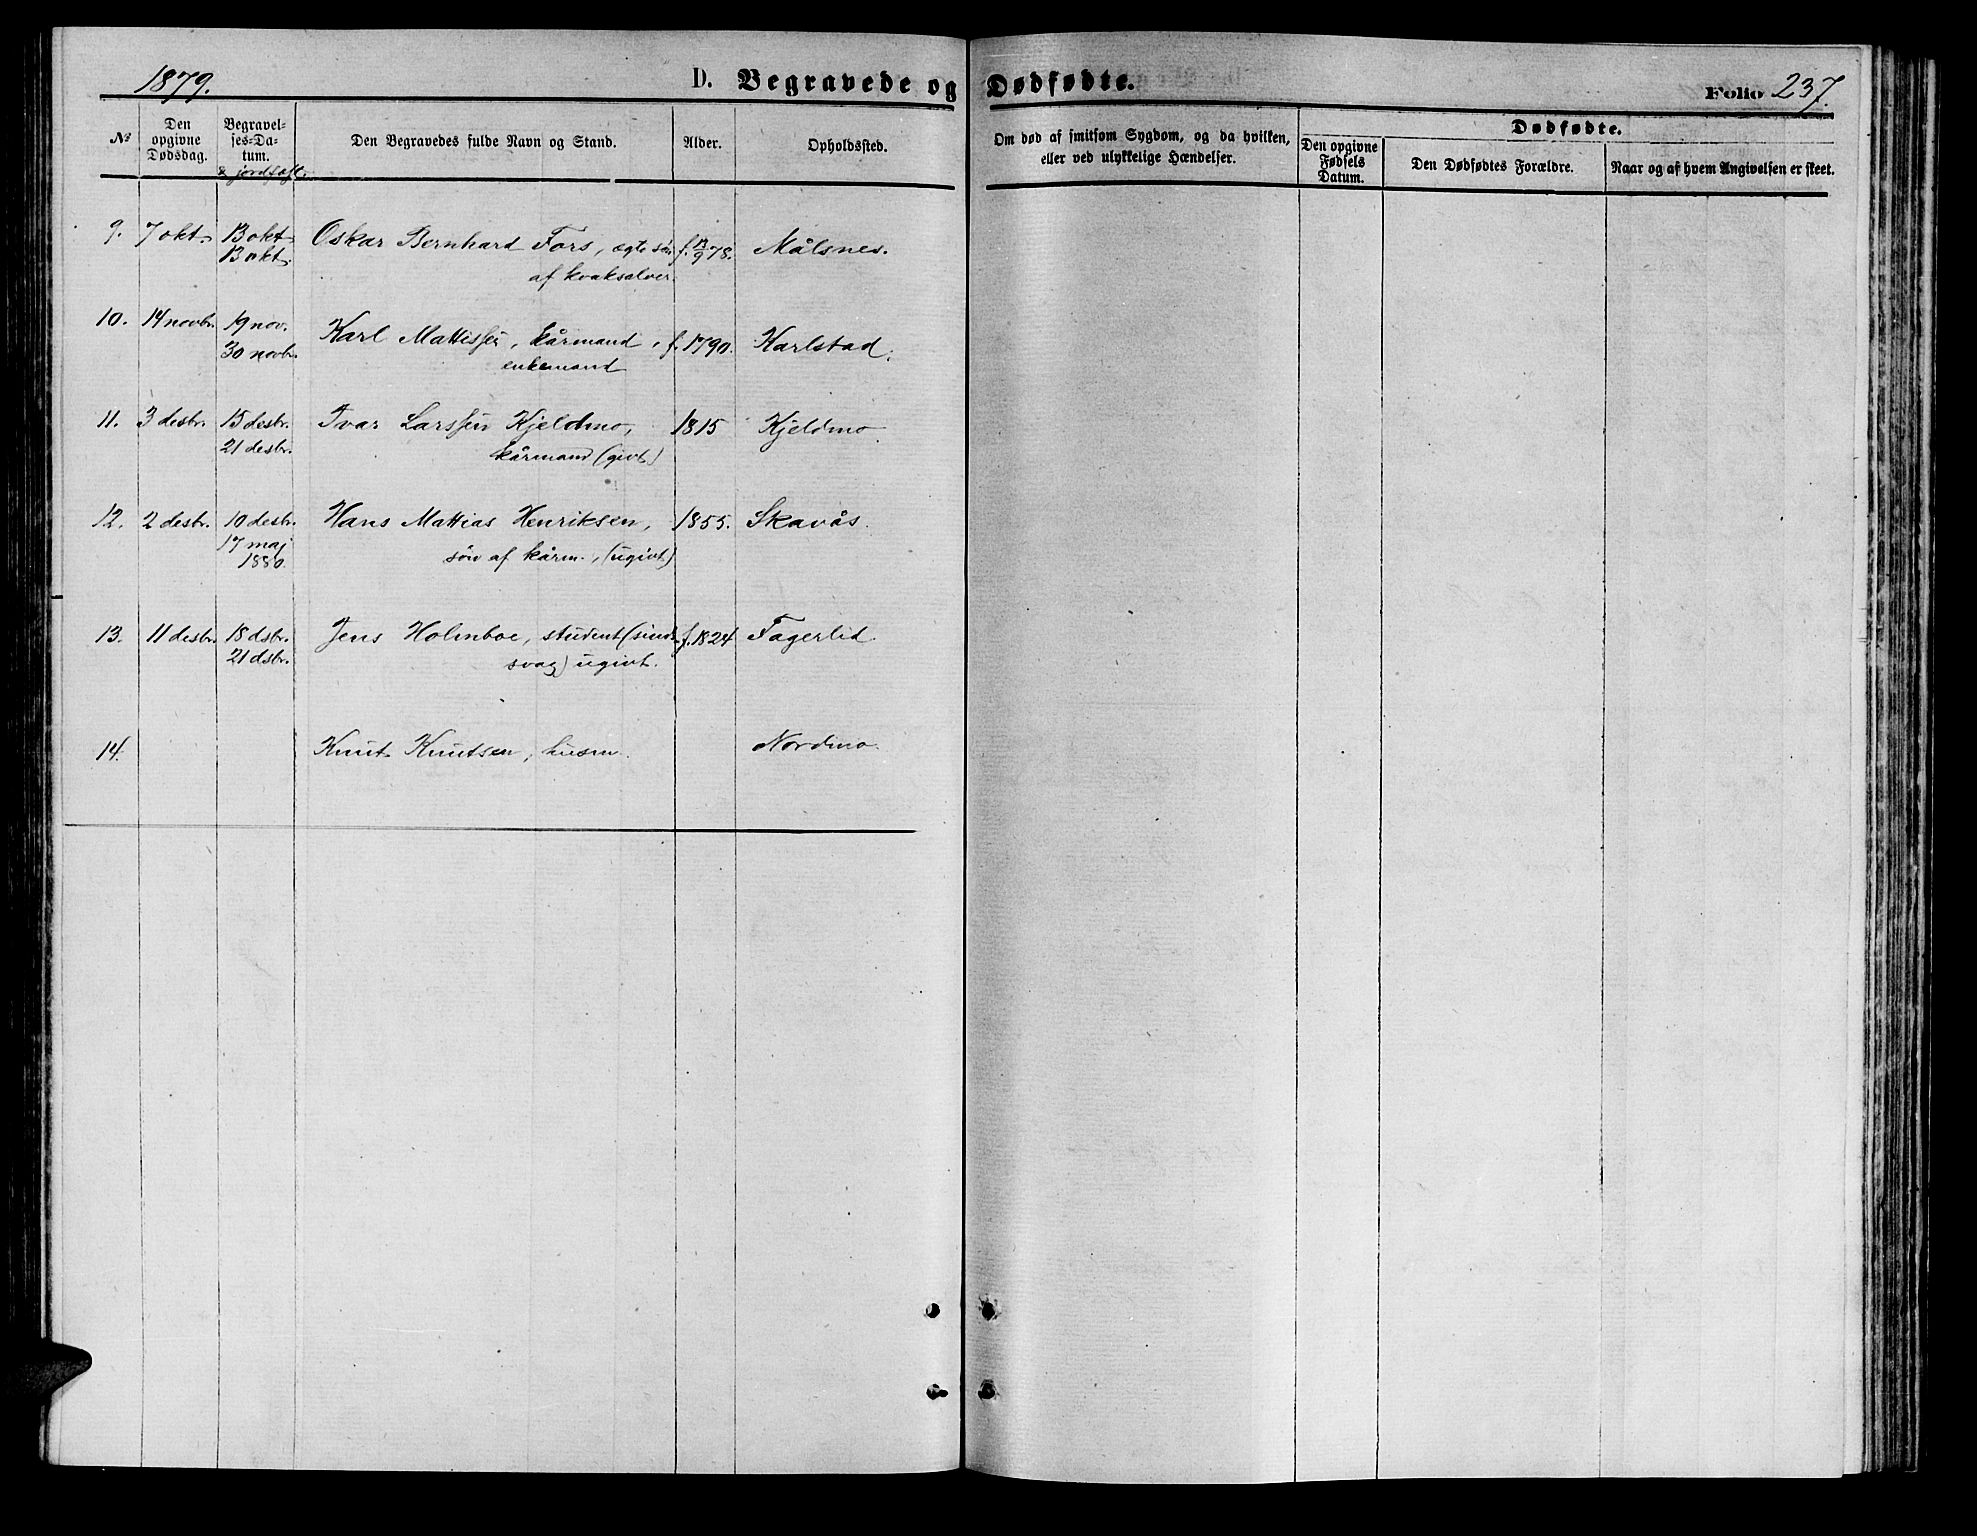 1879. D. Begravede og Dødfødte. Folio 237.
№
Den opgivne Dødsdag.
Begravel-
ses-Da-
tum.
& jordfæst.
Den Begravedes fulde Navn og Stand.
Alder.
Opholdssted.
Om død af smitsom Sygdom, og da hvilken,
eller ved ulykkelige Hændelser.
Dødfødte.
Den opgivne Fødsels Datum.
Den Dødfødtes Forældre.
Naar og af hvem Angivelsen er skeet.
9. 7 okt. 13 okt. Oskar Bernhard Fors, ægte søn f. 13/9 78. Målsnes.
13 okt. af kvaksalver.
10. 14 novbr. 19 nov. Karl Mattissen, kårmand, f. 1790. Karlstad.
30 novbr. enkemand
11. 3 desbr. 15 desbr. Ivar Larssen Kjeldmo, 1815 Kjeldmo.
21 desbr. kårmand (givt)
12. 2 desbr. 10 desbr. Hans Mattias Henriksen, 1855. Skavås.
17 maj søn af kårm., (ugivt)
1880.
13. 11 desbr. 18 dsbr. Jens Holmboe, student (sinds- f. 1824 Fagerlid.
21 dsbr. svag) ugivt.
14. Knut Knutsen, husm. Nordmo.